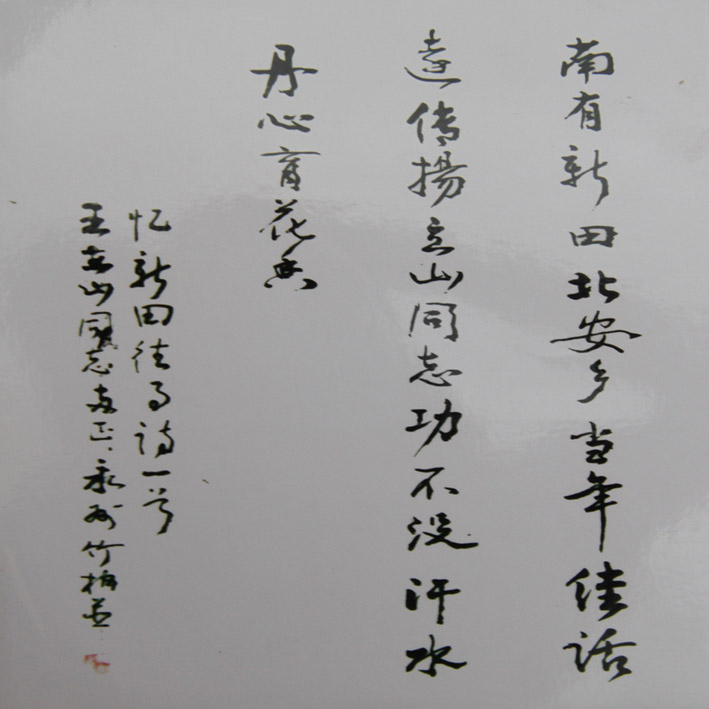 南有新田北安乡当年佳话
远传揚立山同志功不没汗水
丹心育花香
忆新田往事诗一首
王立山同志教正永州竹楠